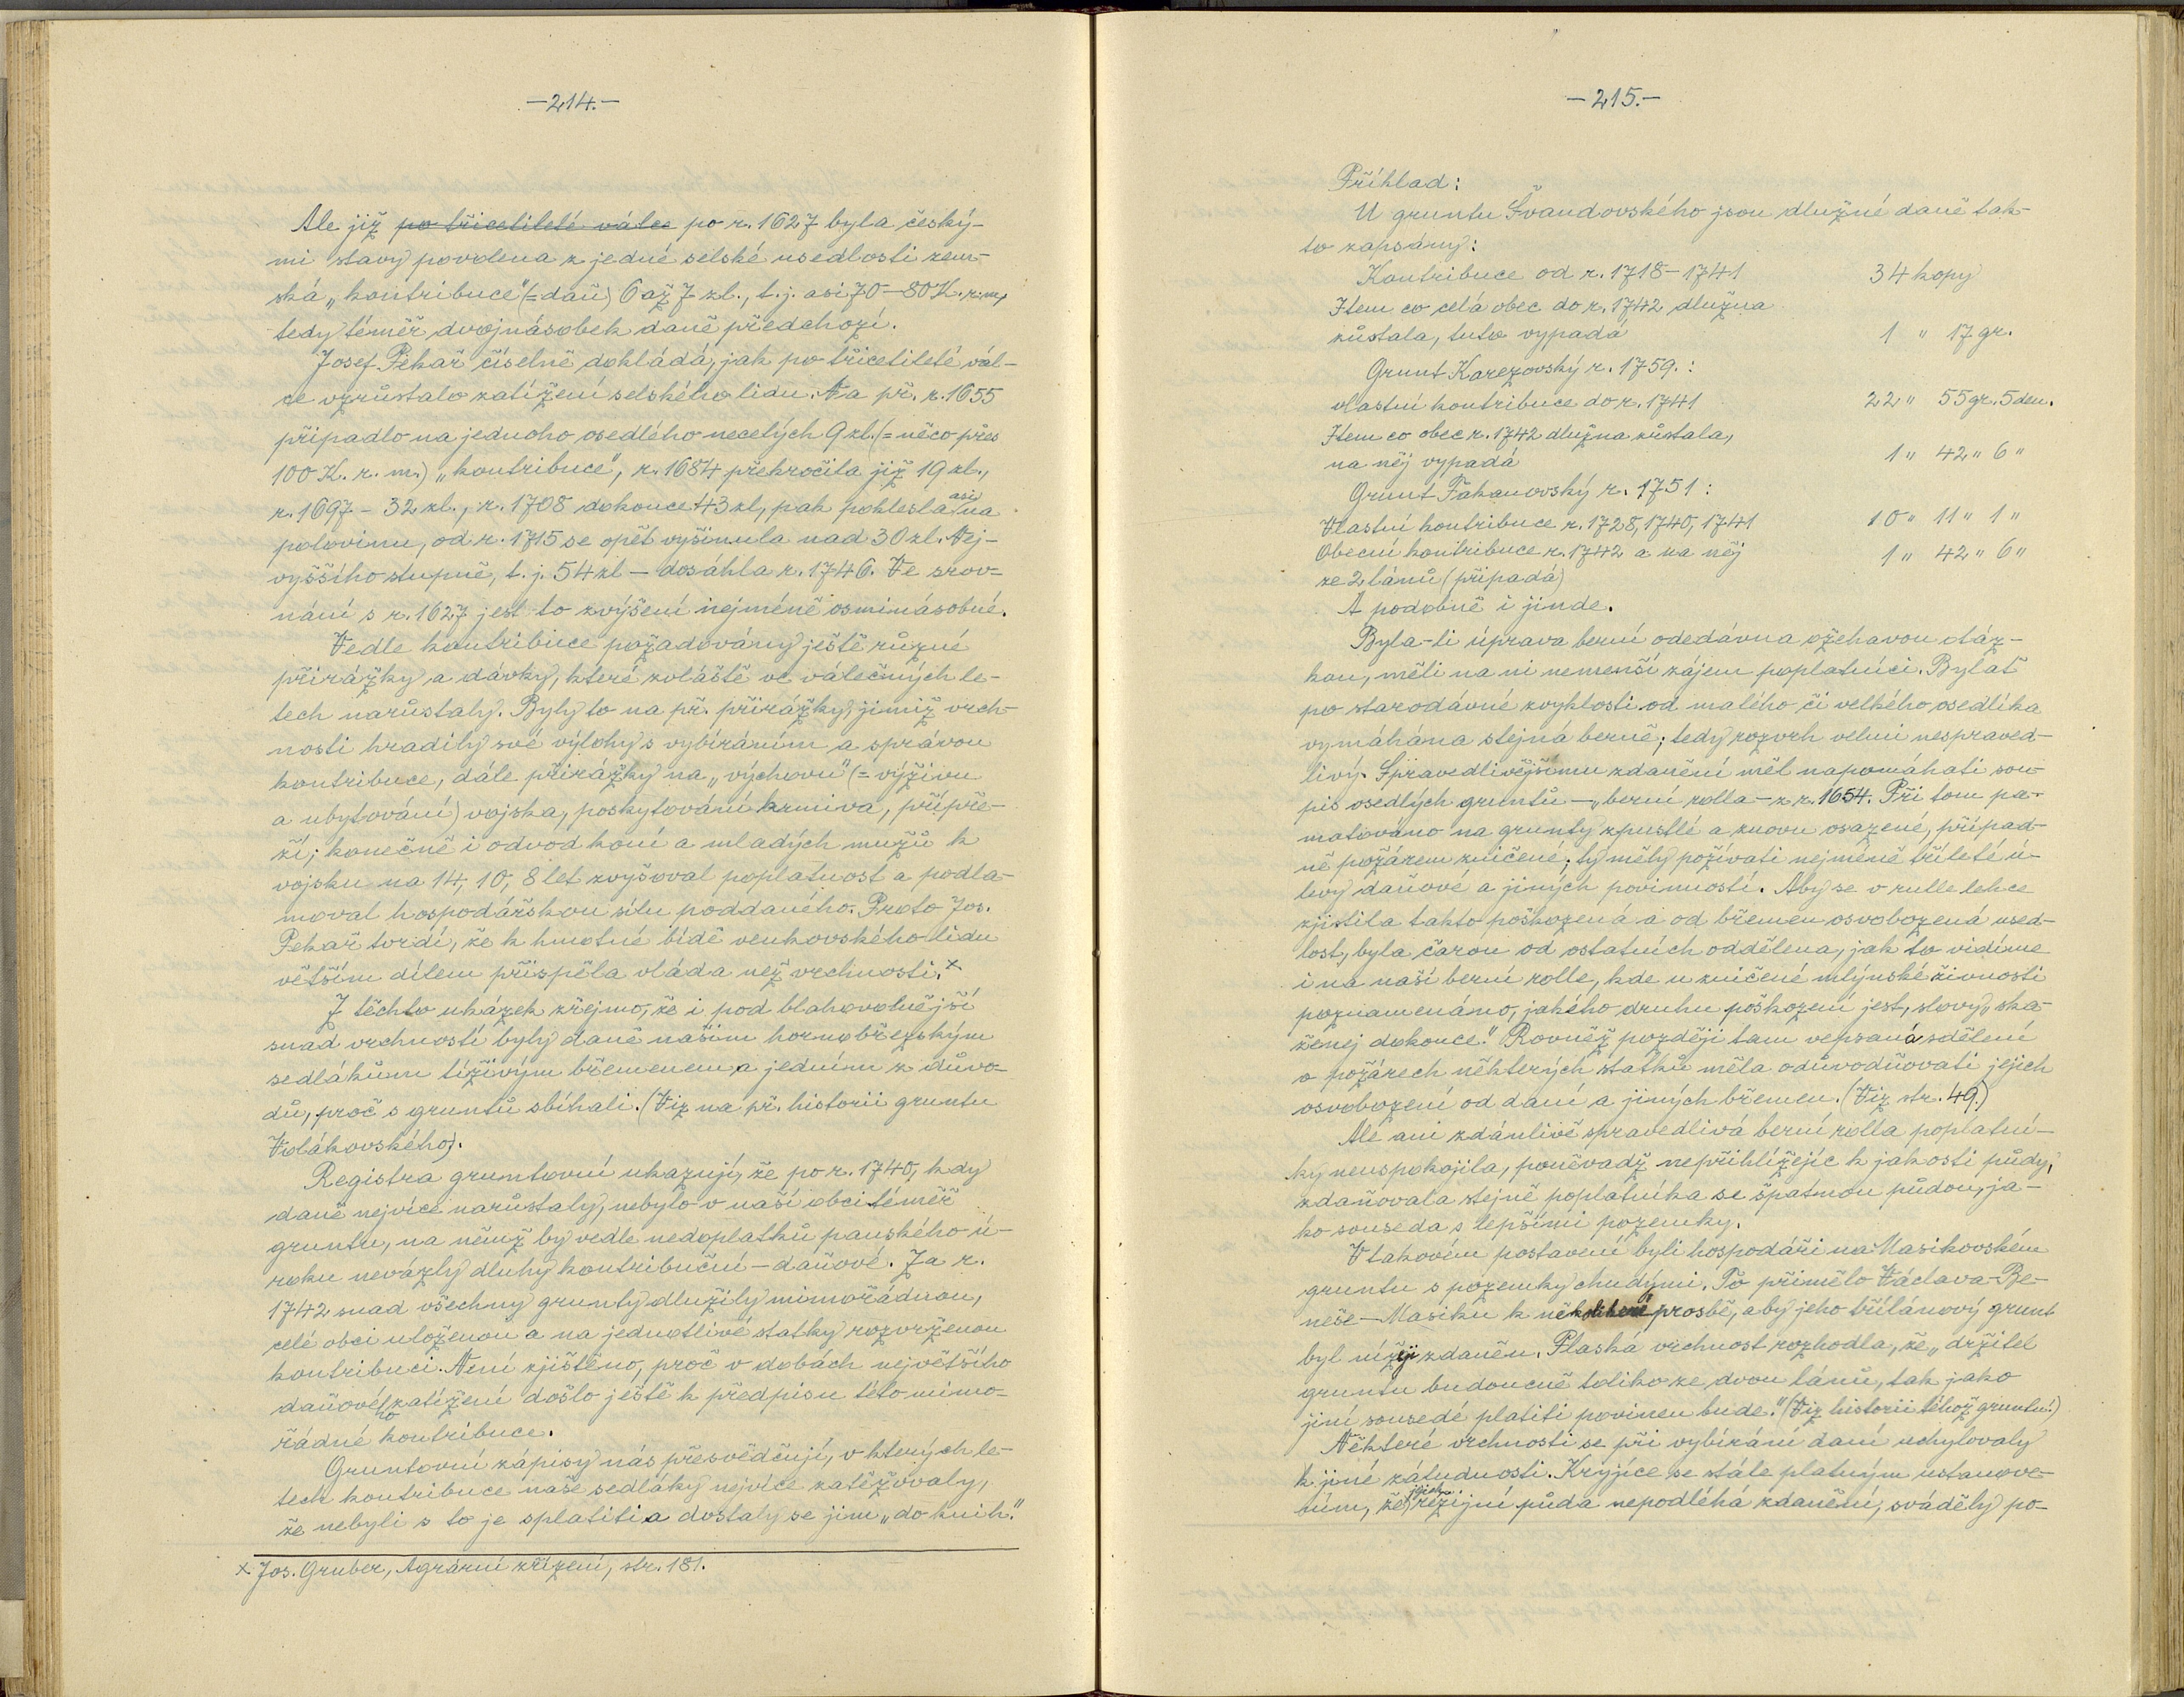 —214.—
Ale již po třicetileté válce po r. 1627 byla český-
mi stavy povolena z jedné selské usedlosti zem-
ská „kontribuce“ (= daň) 6 až 7 zl., t. j. asi 70–80 K. r. m.,
tedy téměř dvojnásobek daně předchozí.
Josef Pekař číselně dokládá, jak po třicetileté vál-
ce vzrůstalo zatížení selského lidu. Na př. r. 1655
připadlo na jednoho osedlého necelých 9 zl. (= něco přes
100 K. r. m.) „kontribuce“, r. 1684 překročila již 19 zl.,
r. 1697 – 32 zl., r. 1708 dokonce 43 zl, pak poklesla asi na
polovinu, od r. 1715 se opět vyšinula nad 30 zl. Nej-
vyššího stupně, t. j. 54 zl – dosáhla r. 1746. Ve srov-
nání s r. 1627 jest to zvýšení nejméně osminásobné.
Vedle kontribuce požadovány ještě různé
přirážky a dávky, které zvláště ve válečných le-
tech narůstaly. Byly to na př. přirážky, jimiž vrch-
nosti hradily své výlohy s vybíráním a správou
kontribuce, dále přirážky na „výchovu“ (= výživu
a ubytování) vojska, poskytování krmiva, přípře-
ží; konečně i odvod koní a mladých mužů k
vojsku na 14, 10, 8 let zvyšoval poplatnost a podla-
moval hospodářskou sílu poddaného. Proto Jos.
Pekař tvrdí, že k hmotné bídě venkovského lidu
větším dílem přispěla vláda než vrchnosti.ˣ
Z těchto ukázek zřejmo, že i pod blahovolnější
snad vrchností byly daně našim hornobřezským
sedlákům tíživým břemenem a jedním z důvo-
dů, proč s gruntů sbíhali. (Viz na př. historii gruntu
Volákovského).
Registra gruntovní ukazují, že po r. 1740, kdy
daně nejvíce narůstaly, nebylo v naší obci téměř
gruntu, na němž by vedle nedoplatků panského ú-
roku nevázly dluhy kontribuční – daňové. Za r.
1742 snad všechny grunty dlužily mimořádnou,
celé obci uloženou a na jednotlivé statky rozvrženou
kontribuci. Není zjištěno, proč v dobách největšího
daňového zatížení došlo ještě k předpisu této mimo-
řádné kontribuce.
Gruntovní zápisy nás přesvědčují, v kterých le-
tech kontribuce naše sedláky nejvíce zatěžovaly,
že nebyli s to je splatiti a dostaly se jim „do knih.“
x Jos. Gruber, Agrární zřízení, str. 181.
—215.—
Příklad:
U gruntu Švandovského jsou dlužné daně tak-
to zapsány:
Kontribuce od r. 1718–1741 34 kopy
Item co celá obec do r. 1742 dlužna
zůstala, tuto vypadá 1 " 17 gr.
Grunt Karezovský r. 1759.:
vlastní kontribuce do r. 1741 22 " 55 gr. 5 den.
Item co obec r. 1742 dlužna zůstala,
na něj vypadá 1 " 42 " 6 "
Grunt Fakanovský r. 1751:
Vlastní kontribuce r. 1728, 1740, 1741 10 " 11 " 1 "
Obecní kontribuce r. 1742 a na něj 1 " 42 " 6 "
ze 2 lánů (připadá)
A podobně i jinde.
Byla-li úprava berní odedávna ožehavou otáz-
kou, měli na ni nemenší zájem poplatníci. Bylať
po starodávné zvyklosti od malého či velkého osedlíka
vymáhána stejná berně; tedy rozvrh velmi nespraved-
livý. Spravedlivějšímu zdanění měl napomáhati sou-
pis osedlých gruntů – „berní rolla – z r. 1654. Při tom pa-
matováno na grunty zpustlé a znovu osazené, případ-
ně požárem zničené; ty měly požívati nejméně tříleté ú-
levy daňové a jiných povinností. Aby se v rulle lehce
zjistila takto poškozená a od břemen osvobozená used-
lost, byla čarou od ostatních oddělena, jak to vidíme
i na naší berní rolle, kde u zničené mlýnské živnosti
poznamenáno, jakého druhu poškození jest, slovy „ska-
ženej dokonce.“ Rovněž později tam vepsaná sdělení
o požárech některých statků měla odůvodňovati jejich
osvobození od daní a jiných břemen. (Viz str. 49.)
Ale ani zdánlivě spravedlivá berní rolla poplatní-
ky neuspokojila, poněvadž nepřihlížejíc k jakosti půdy,
zdaňovala stejně poplatníka se špatnou půdou, ja-
ko souseda s lepšími pozemky.
V takovém postavení byli hospodáři na Masikovském
gruntu s pozemky chudými. To přimělo Václava Be-
neše – Masíka k několikeré prosbě, aby jeho třílánový grunt
byl nížeji zdaněn. Plaská vrchnost rozhodla, že „držitel
gruntu budoucně toliko ze dvou lánů, tak jako
jiní sousedé platiti povinen bude.“ (Viz historii téhož gruntu.)
Některé vrchnosti se při vybírání daní uchylovaly
k jiné záludnosti. Kryjíce se stále platným ustanove-
ním, že jejich režijní půda nepodléhá zdanění, sváděly po-